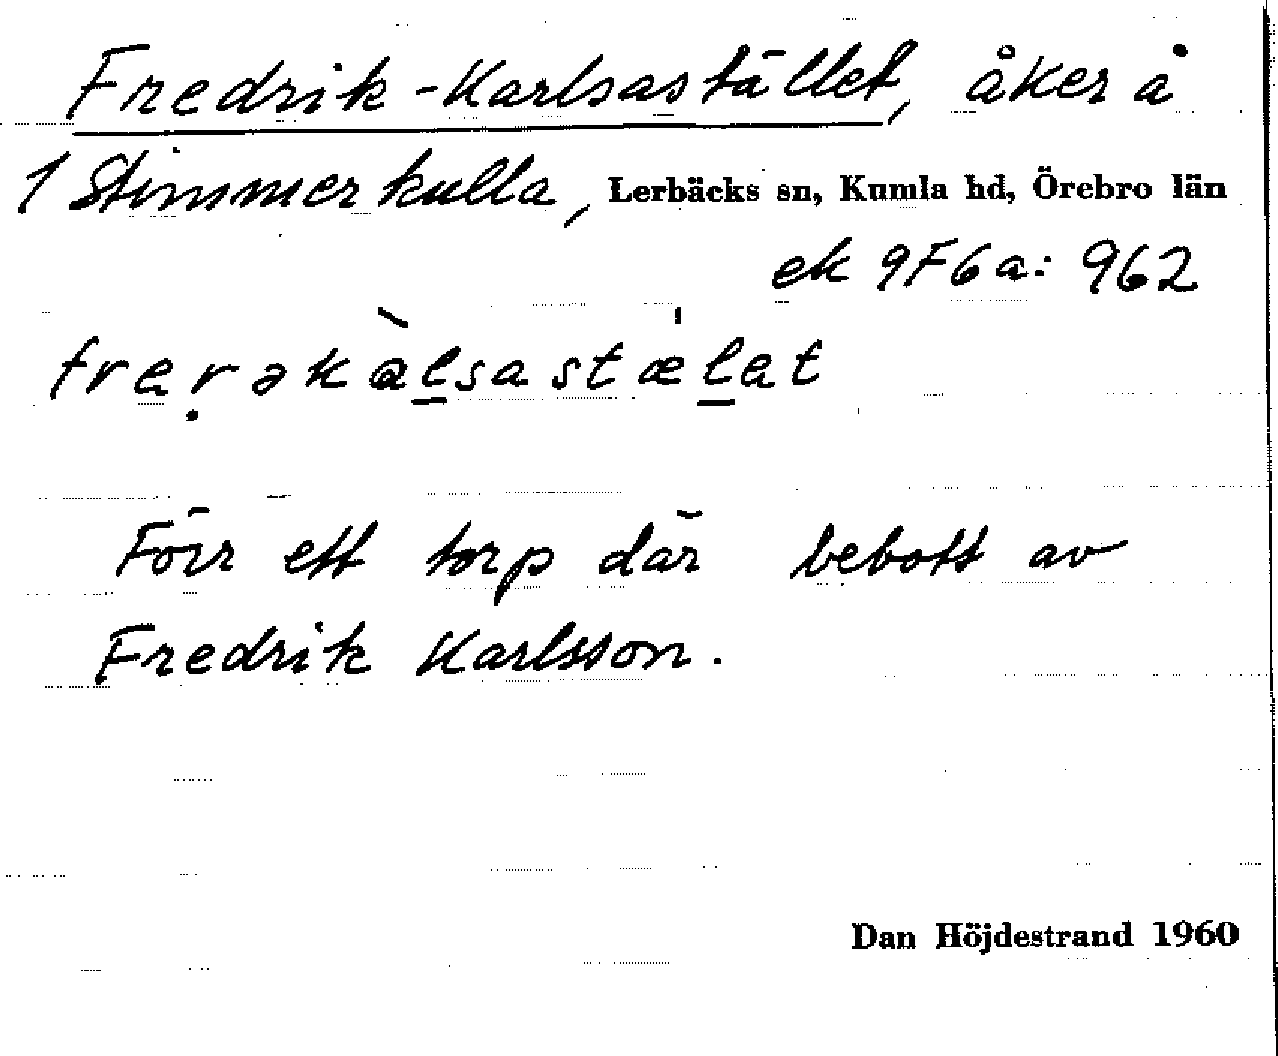 Fredrik-Karlsastället, åker å
1 Stimmerkulla, Lerbäcks sn, Kumla hd, Örebro län
ek 9F6a: 962
frerəkàlsastæ̍lat
Förr ett torp där bebott av
Fredrik Karlsson.
Dan Höjdestrand 1960